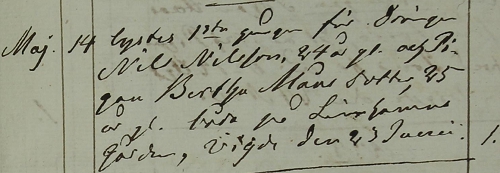 Maj. 14 lystes 1sta gången för Drängen
Nils Nilsson, 24 år gl. och Pi-
gan Bertha Måns dotter, 25
år gl. båda på Limhamns
gården, vigde den 25 Junii. 1.